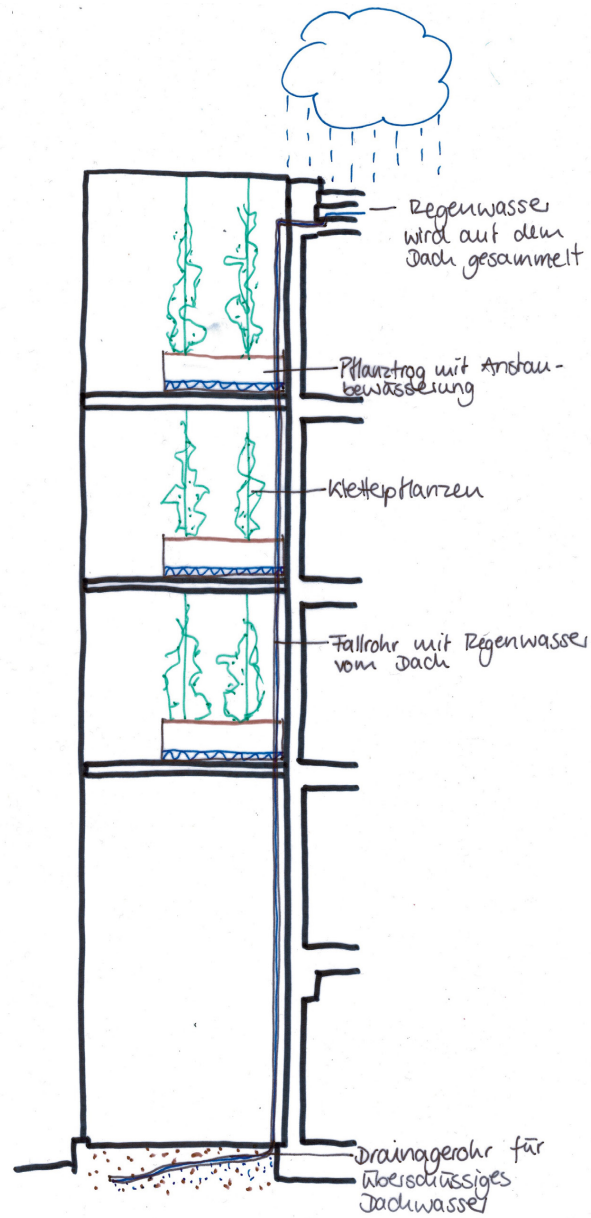 Regenwasser
wird auf dem
Dach gesammelt
Pflanztrog mit Anstau-
bewässerung
Kletterpflanzen
Fallrohr mit Regenwasser
vom Dach
Drainagerohr für
überschüssiges
Dachwasser